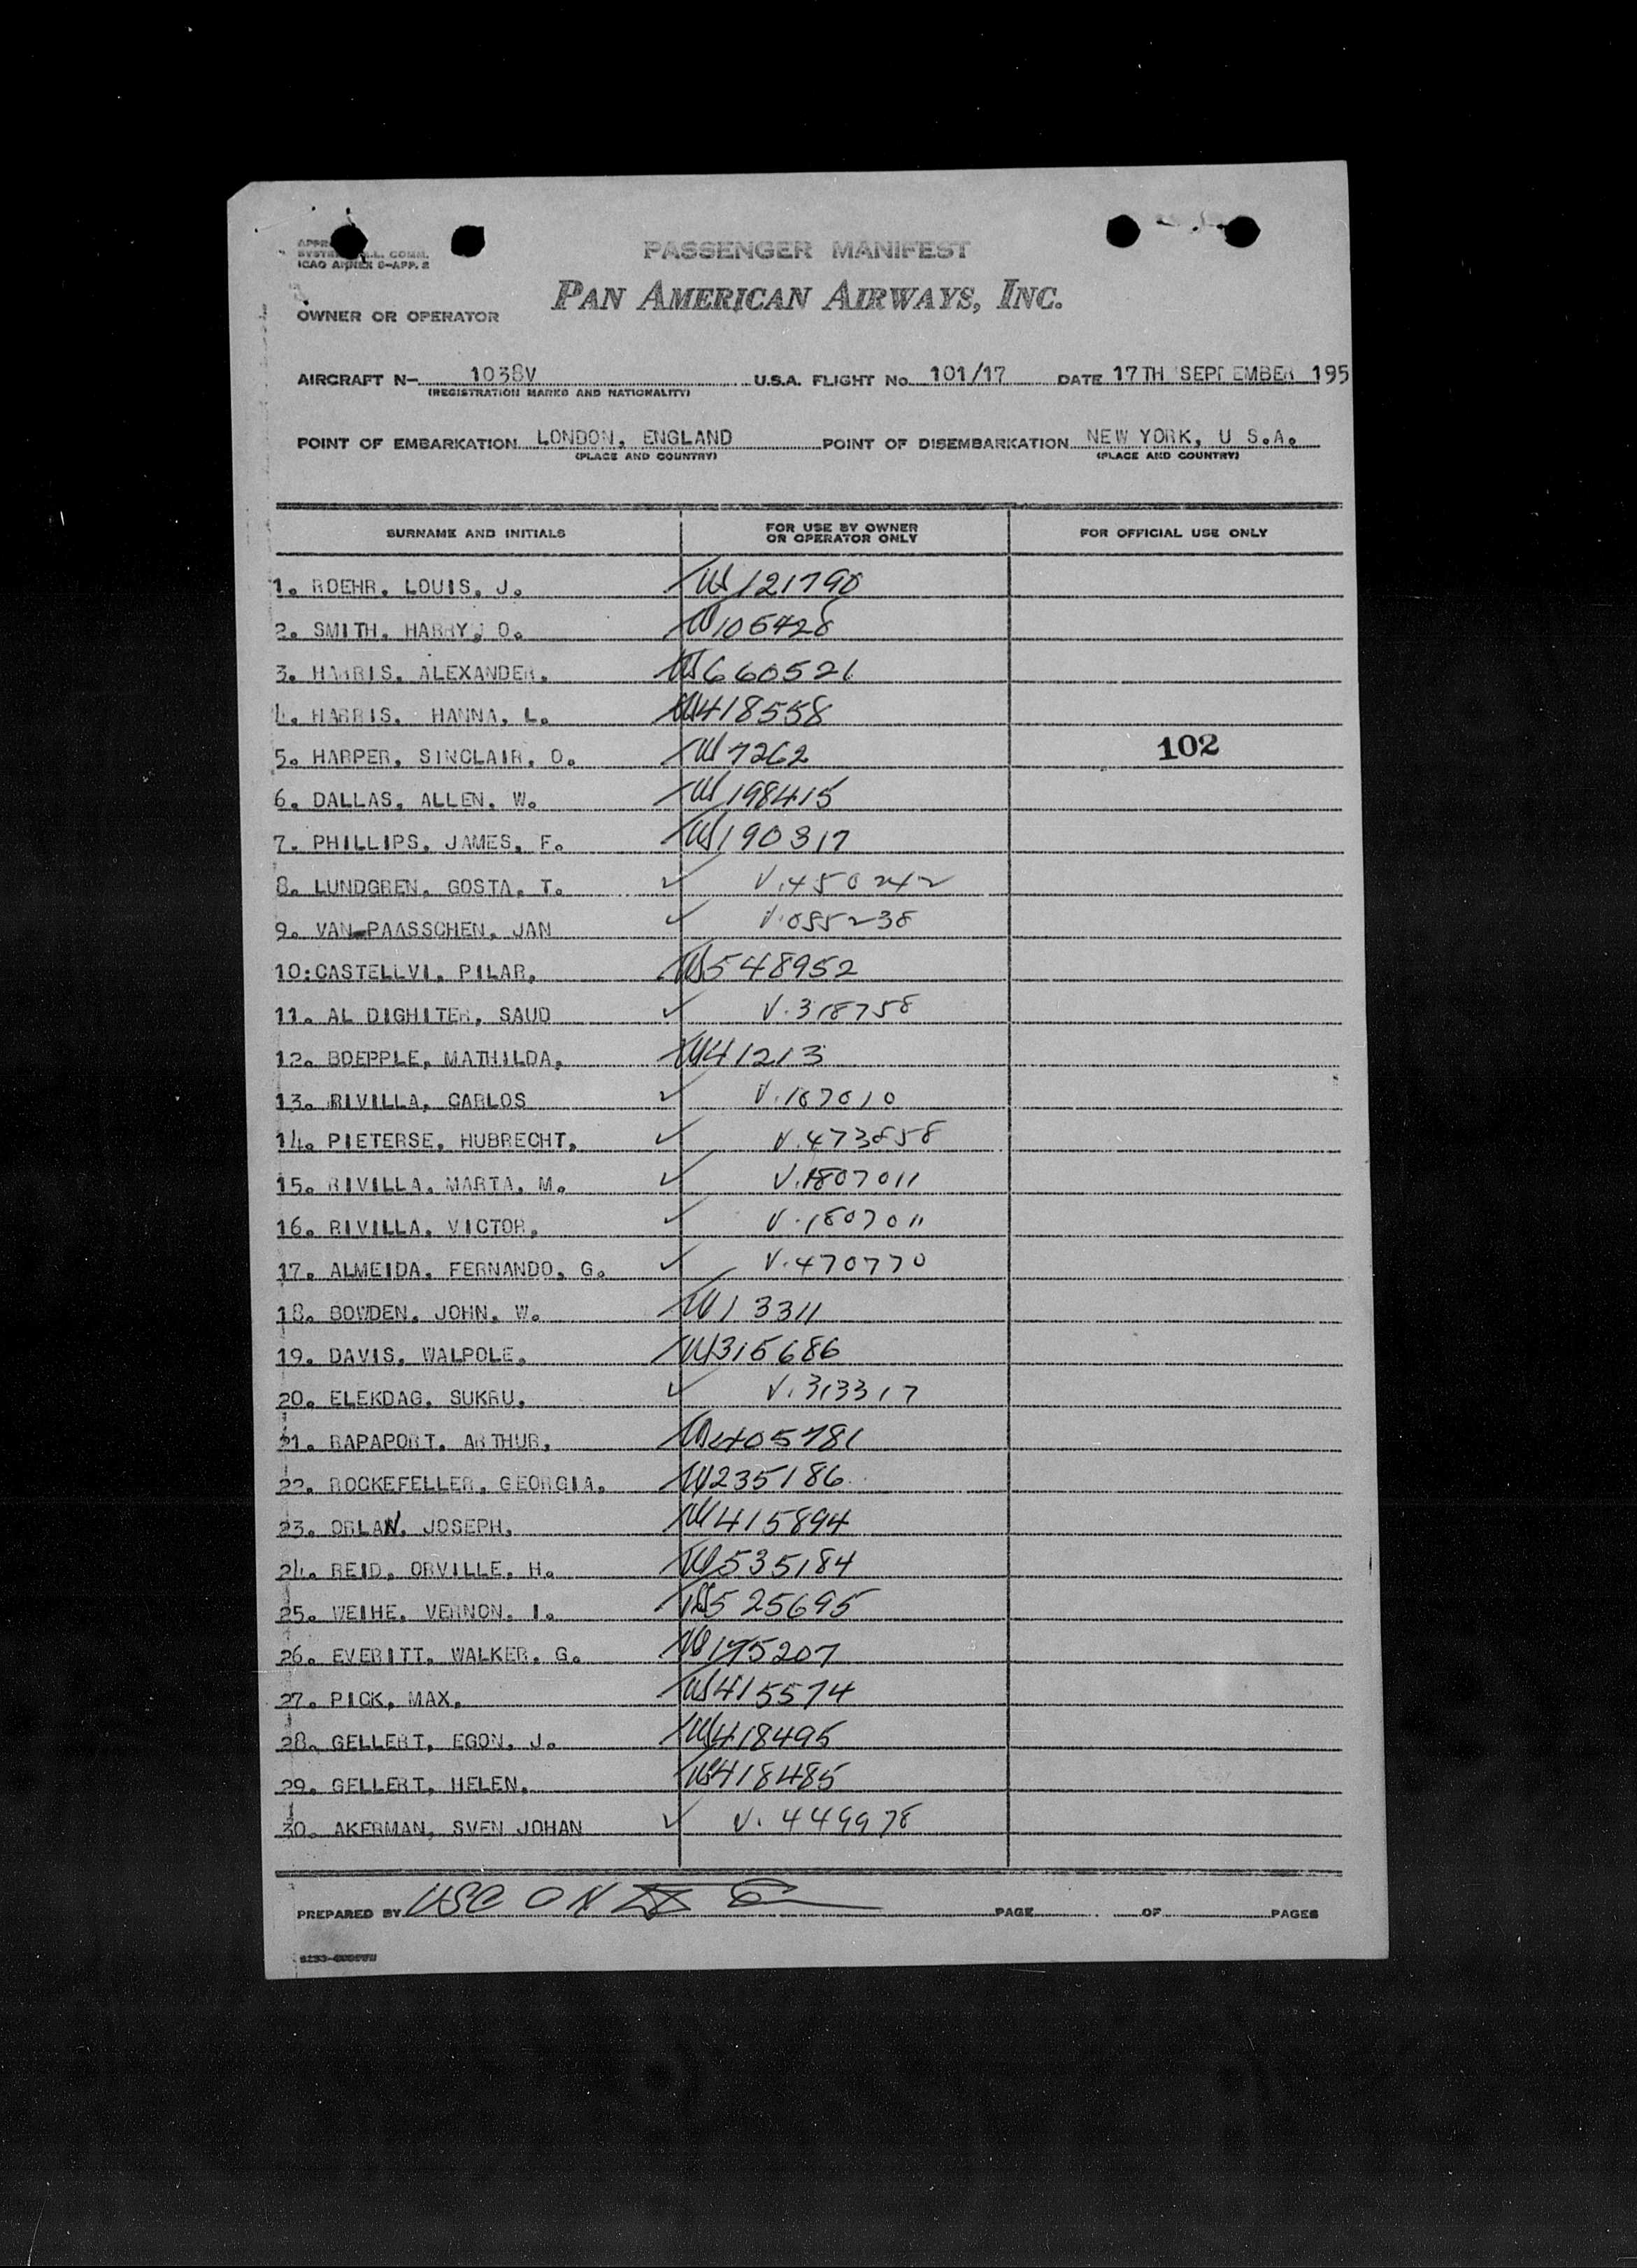 PASSENGER MANIFEST
SYSTEM C.A.L. COMM.
ICAO ANNEX 9-APP. 2
PAN AMERICAN AIRWAYS, INC.
OWNER OR OPERATOR
AIRCRAFT N- 1038V U.S.A. FLIGHT No. 101/17 DATE 17TH SEPTEMBER 195
(REGISTRATION MARKS AND NATIONALITY)
POINT OF EMBARKATION LONDON, ENGLAND POINT OF DISEMBARKATION NEW YORK, U S.A.
(PLACE AND COUNTRY) (PLACE AND COUNTRY)
SURNAME AND INITIALS FOR USE BY OWNER OR OPERATOR ONLY FOR OFFICIAL USE ONLY
1. ROEHR, LOUIS, J. US 121790
2. SMITH, HARRY, O. US 105428
3. HARRIS, ALEXANDER, US 660521
4. HARRIS, HANNA, L. US 418558
5. HARPER, SINCLAIR, O. US 7262 102
6. DALLAS, ALLEN, W. US 198415
7. PHILLIPS, JAMES, F. US 190317
8. LUNDGREN, GOSTA, T. ✓ V.450242
9. VAN PAASSCHEN, JAN ✓ V.085238
10: CASTELLVI, PILAR, US 548952
11. AL DIGHITER, SAUD ✓ V.318758
12. BOEPPLE, MATHILDA, US 41213
13. RIVILLA, CARLOS ✓ V.187010
14. PIETERSE, HUBRECHT, ✓ V.473858
15. RIVILLA, MARTA, M. ✓ V.1807011
16. RIVILLA, VICTOR, ✓ V.1807011
17. ALMEIDA, FERNANDO, G. ✓ V.470770
18. BOWDEN, JOHN, W. US 13311
19. DAVIS, WALPOLE, US 315686
20. ELEKDAG, SUKRU, ✓ V.313317
21. RAPAPORT, ARTHUR, US 405781
22. ROCKEFELLER, GEORGIA, US 235186
23. ORLAN, JOSEPH, US 415894
24. REID, ORVILLE, H. US 535184
25. WEIHE, VERNON, I. US 525695
26. EVERITT, WALKER, G. US 175207
27. PICK, MAX, US 415574
28. GELLERT, EGON, J. US 418495
29. GELLERT, HELEN, US 418485
30. AKERMAN, SVEN JOHAN ✓ V. 449978
PREPARED BY USC ON PAGE OF PAGES